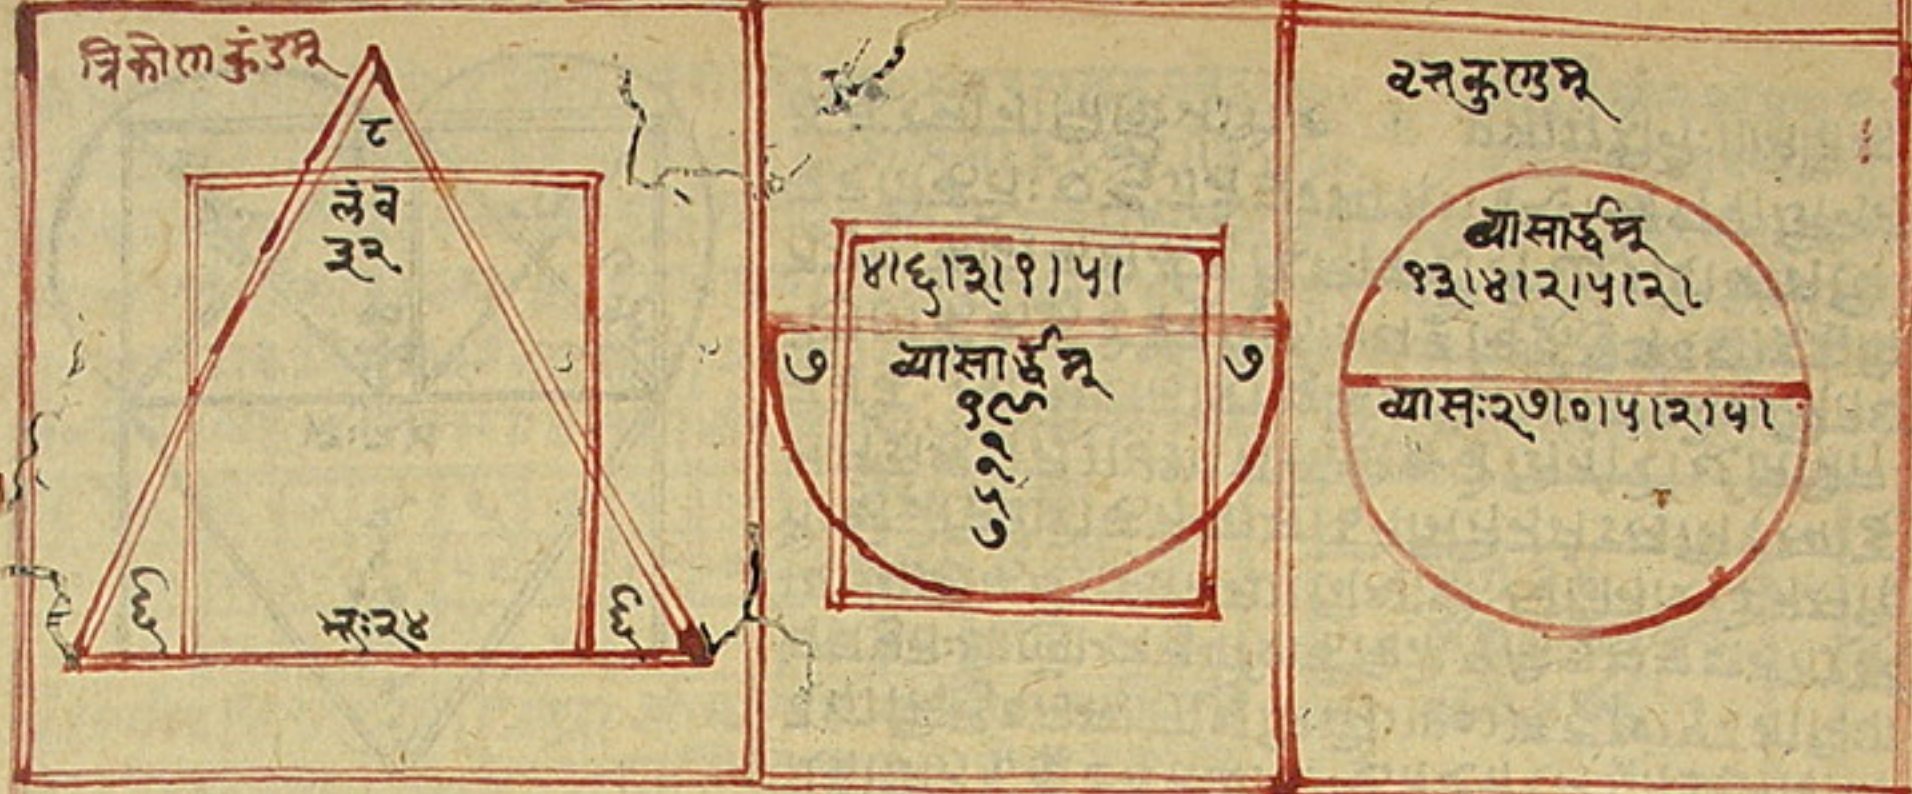 त्रिकोणकुंडम्
८
लंब
३२
६
भूः२४
६
४।६।३।१।५।
७
व्यासार्द्धम्
७
१९
१
६
७
वृत्तकुण्डम्
व्यासार्द्धम्
१३।४।२।५।२।
व्यासः२७।०।५।२।५।